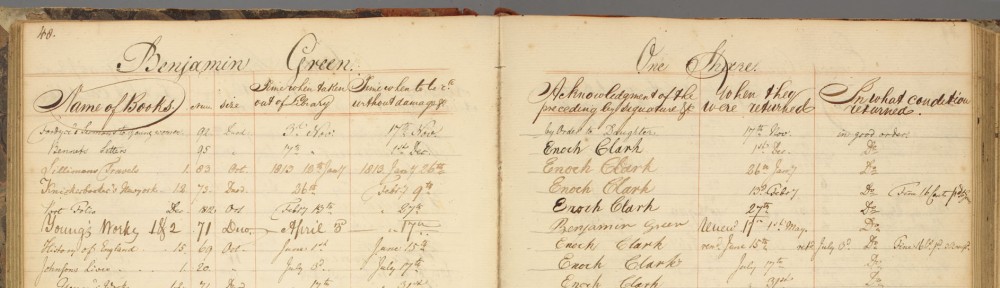 48.
Benjamin Green. One Share.
Name of Books num size Time when taken out of Library Time when to be r.d without damage &c Acknowledgment of the preceding by signature &c When they were returned In what condition returned.
Fordyce's Sermons to young women 92 Duod. 3d Nov. 17th Nov. by Order to Daughter 17th Nov. in good order
Bennets Letters 95 " 7th " 1st Dec. Enoch Clark 1st Dec. Do
Sillimans Travels 1. 83 Oct 1813 10th Jany 1813 Jany 26th Enoch Clark 26th Jany Do
Knickerbocker's New york 1.2 73. Duod. 26th Feby 9th Enoch Clark Feby Do Fine 16 Cent
Port Folio Dec. 1812. Oct Feby 13th " 27th Enoch Clark 27th Do
Young's Works 1&2 71 Duo. April 3 " 17th Benjamin Green Renew 17th 1st May. Do
History of England .. 15. 69 Oct. June 1st June 15th Enoch Clark June 15th July 3d. Do Fine
Johnsons Lives .. 1. 20. " July 3d. July 17th Enoch Clark July 17th Do
17th 31st Enoch Clark 31st Do